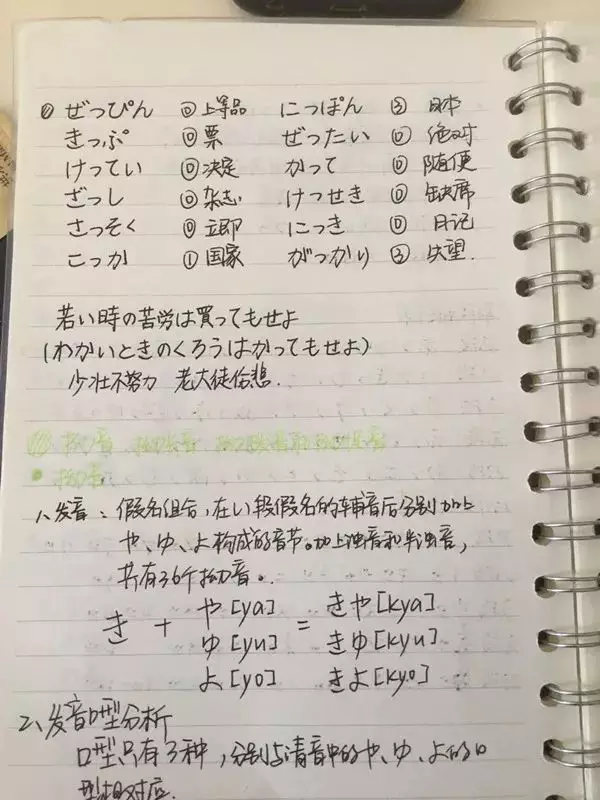 ① ぜっぴん ⓪ 上等品 にっぽん ③ 日本
きっぷ ⓪ 票 ぜったい ⓪ 绝对
けってい ⓪ 决定 かって ⓪ 随便
ざっし ⓪ 杂志 けっせき ⓪ 缺席
さっそく ⓪ 立即 にっき ⓪ 日记
こっか ① 国家 がっかり ③ 失望.
若い時の苦労は買ってもせよ
(わかいときのくろうはかってもせよ)
少壮不努力 老大徒伤悲.
拗音、拗长音
拗音
1、发音:假名组合,在い段假名的辅音后分别加上
や、ゆ、よ构成的音节。加上浊音和半浊音,
共有36个拗音。
き + や[ya] = きや[kya]
ゆ[yu] きゆ[kyu]
よ[yo] きよ[kyo]
2、发音口型分析
口型只有3种,分别与清音中的や、ゆ、よ的口
型相对应.